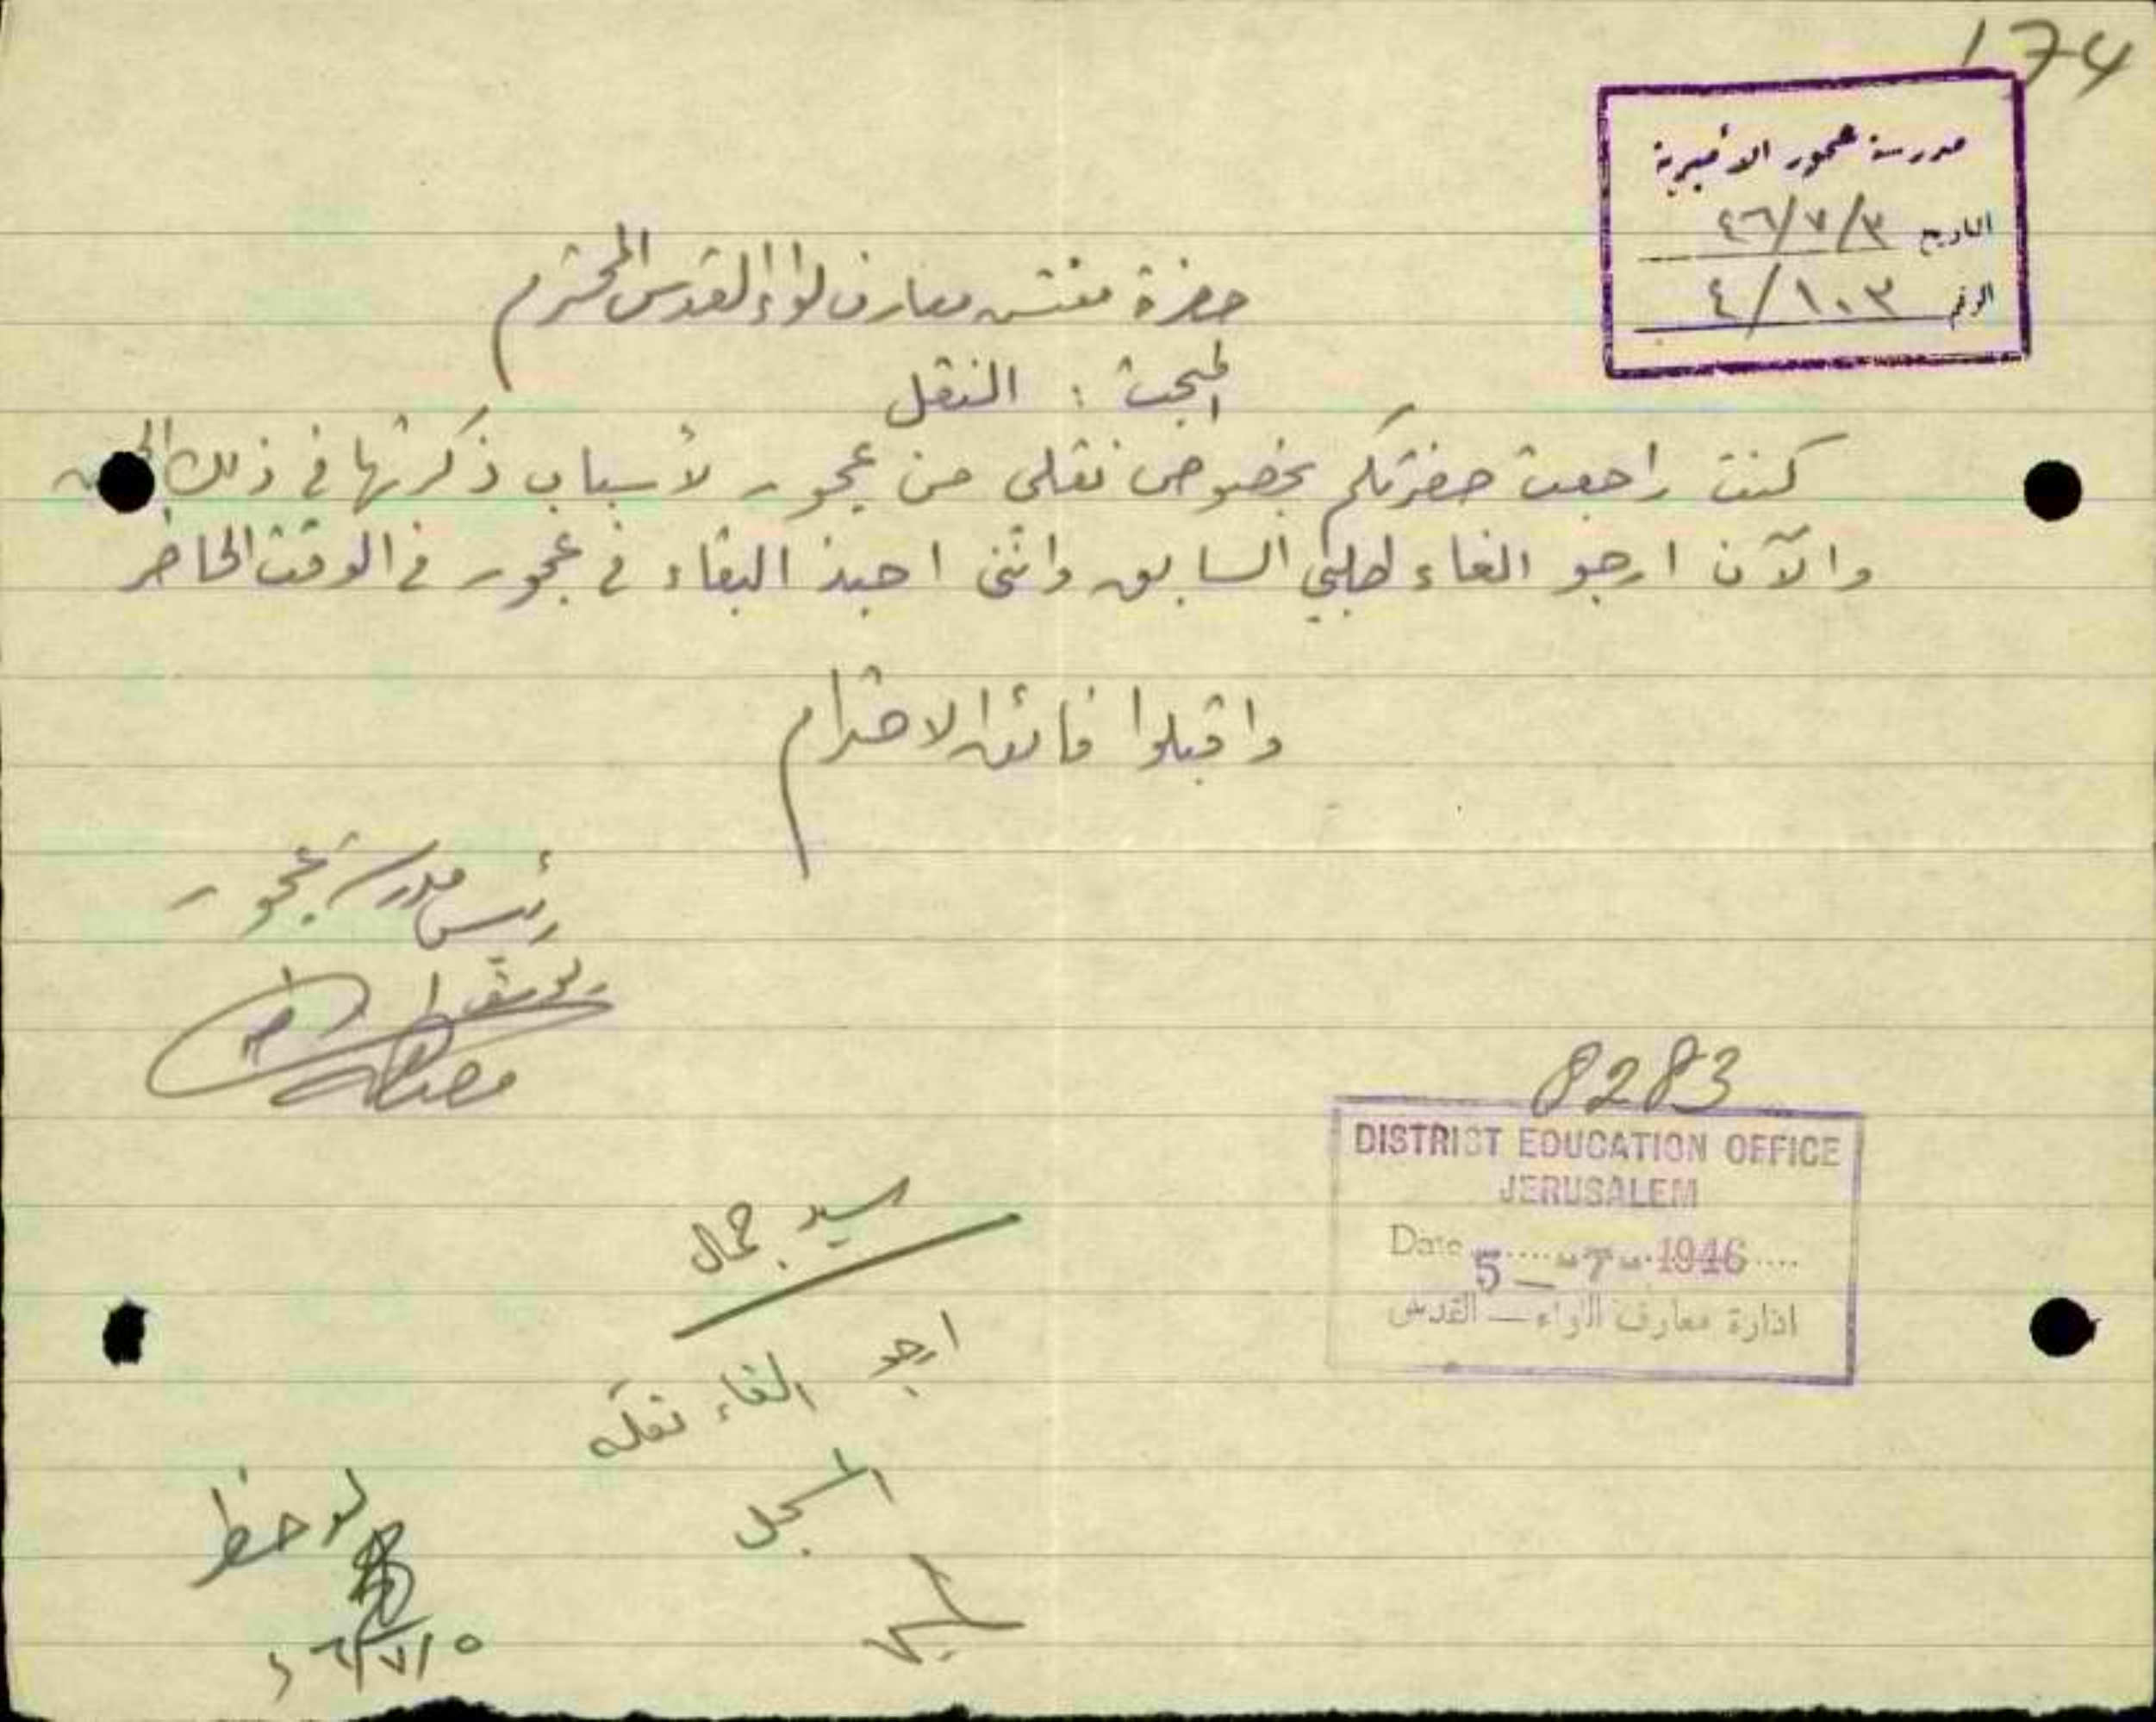 174
مدرسة عجور الاميرية
التاريخ ٤٦/٧/٣
الرقم ٤/١٠٣
حضرة مفتش معارف لواء القدس المحترم
المبحث : النقل
كنت راجعت حضرتكم بخصوص نقلي من عجور لأسباب ذكرتها في ذلك الحين
والآن ارجو الغاء طلبي السابق وانني احبذ البقاء في عجور في الوقت الحاضر
واقبلوا فائق الاحترام
رئيس مدرسة عجور
8283
DISTRICT EDUCATION OFFICE
JERUSALEM
Date 5-7-1946
ادارة معارف اللواء — القدس
سيد جمال
ارجو الغاء نقله
المسجل
لوحظ
٤٦/٧/٥